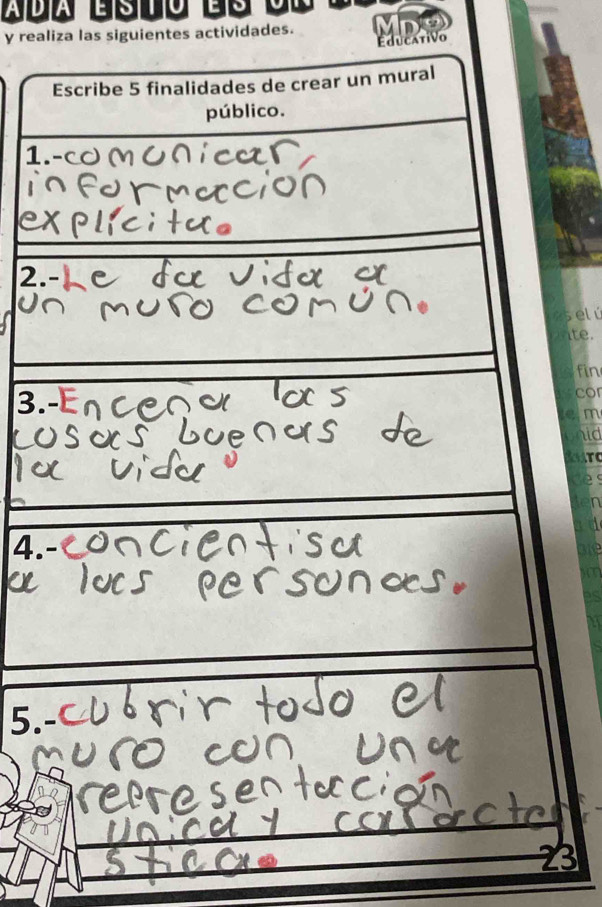 y realiza las siguientes actividades.
MD
EDUCATIVO
Escribe 5 finalidades de crear un mural
público.
1.-comunicar,
informacion
explícita.
2.-Le da vida a
un muro común.
3.-Encena las
cosas buenas de
la vida
4.-concientisa
a las personas.
5.-cubrir todo el
muro con una
representación
unica y caracterí
stica.
23